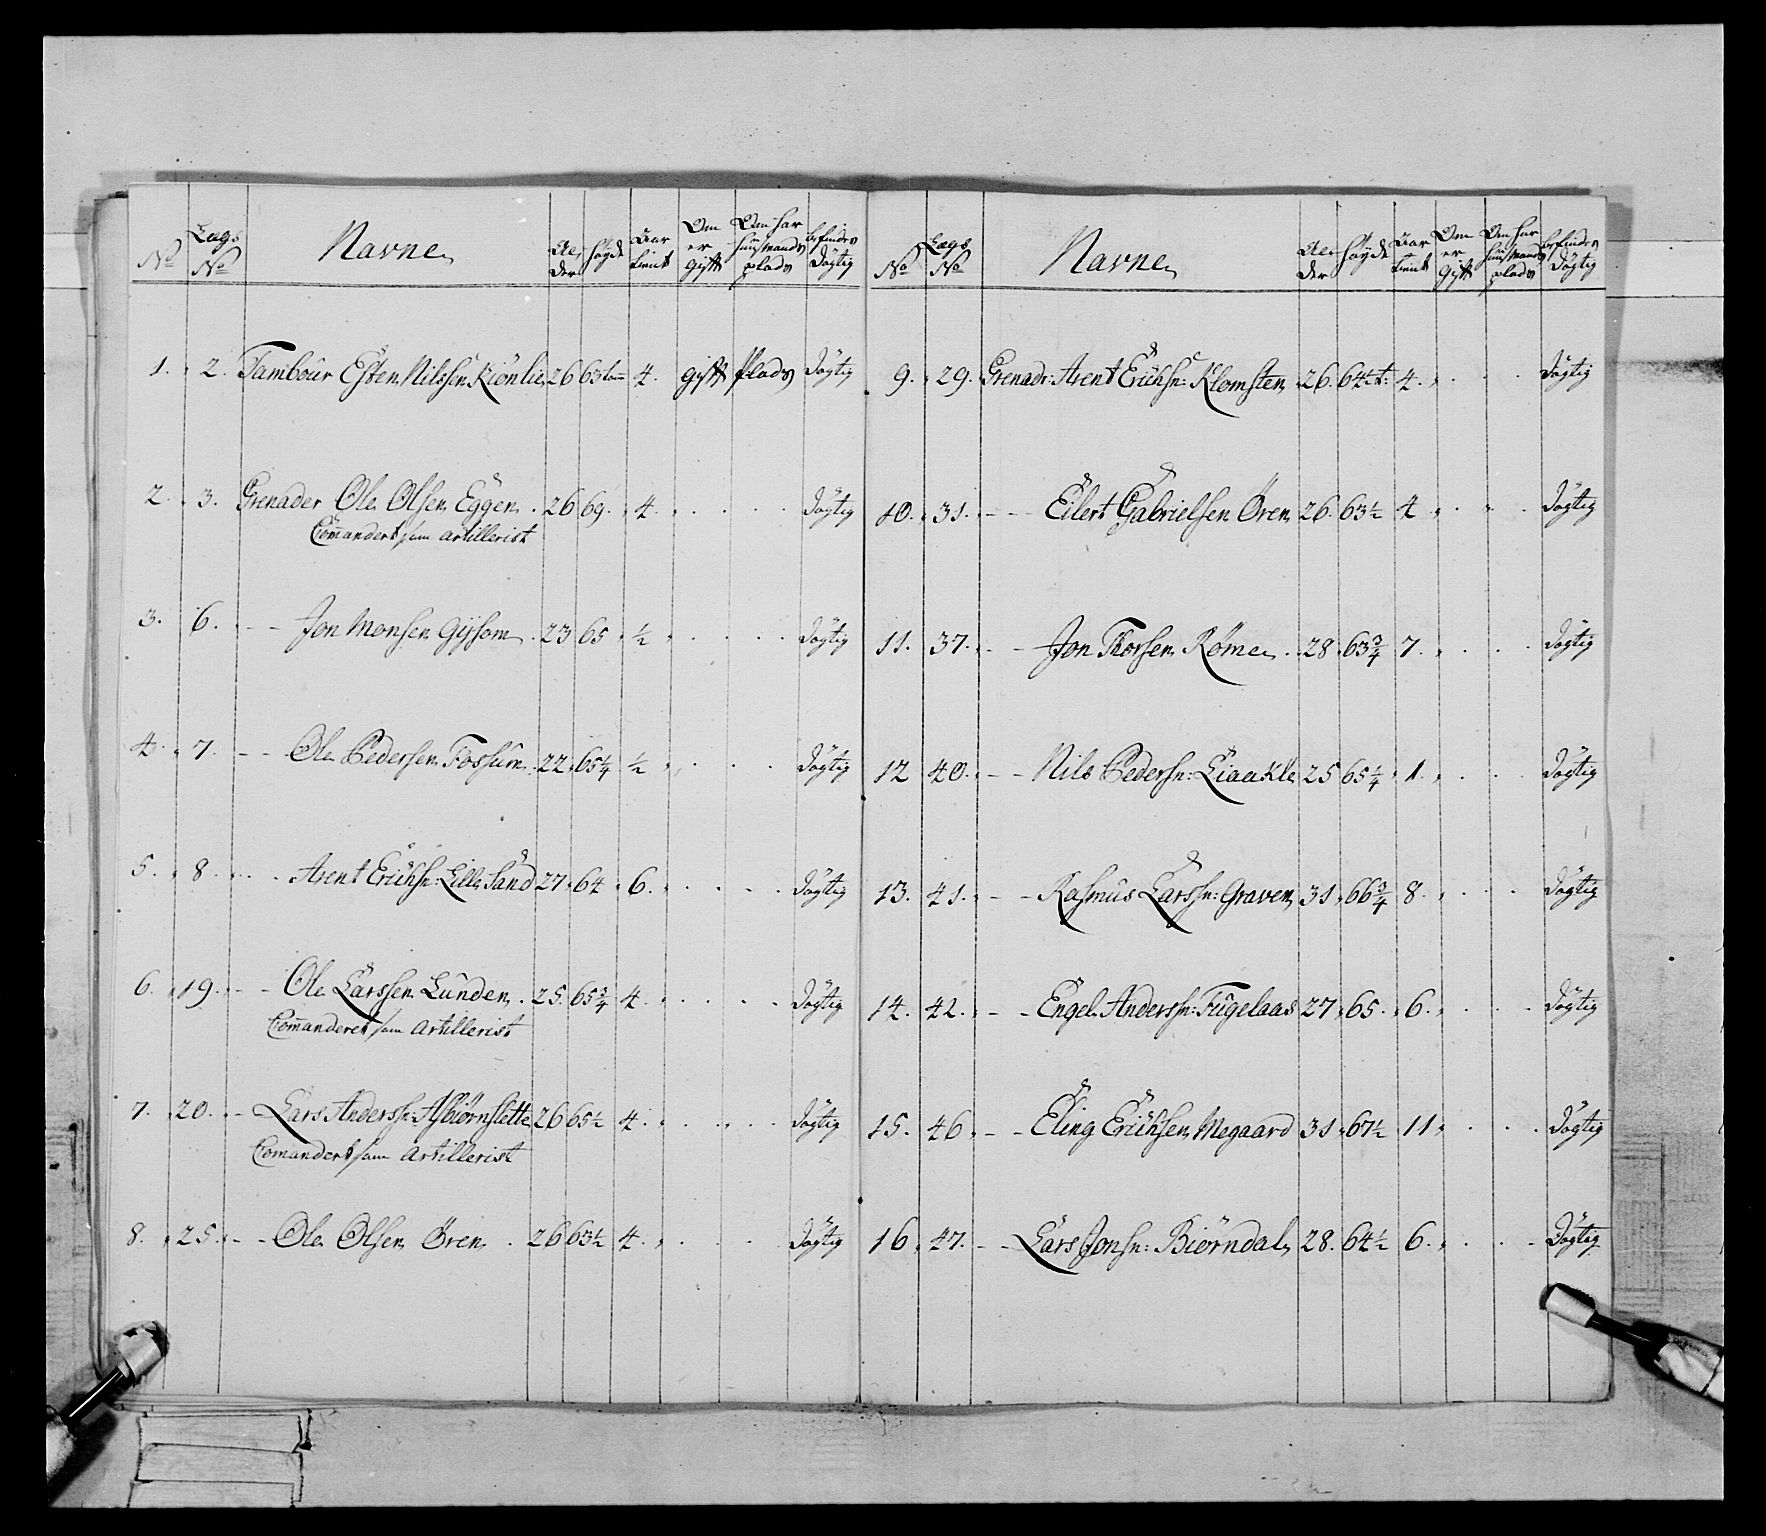 No Lægs No Navne Al, der Høyde Aar tient Om er gift Om har huusmands plads befindes dögtig
1. 2. Tambour Esten Nilssen Kiönlie 26 63 tom 4. gift Plads dögtig
2. 3. Grenader Ole Olsen Eggen 26 69. 4. dögtig
Comandert som artillerist
3. 6. Jon Monsen Gissom 23 65 ½ dögtig
4. 7. Ole Pedersen Fossum 22 65¼ ½ dögtig
5. 8. Arent Erichsn: Lille Sand 27 64 6. dögtig
6. 19. Ole Larssen Lunden 25. 65¾ 4. dögtig
Comanderet som Artillerist
7. 20. Lars Anderssn: Asbiörnslette 26 65½ 4. dögtig
Comandert som Artillerist
8. 25. Ole Olsen Ören 26 63½ 4. dögtig
No Lægs No Navne Al der Høyde Aar tient Om er gift Om har huusmands plads befindes dögtig
9. 29. Grenadr: Arent Erichsn: Klomsten 26. 64½ t: 4. dögtig
10. 31. Eilert Gabrielsen Ören 26. 63½ 4 dögtig
11. 37. Jon Thorsen Røme 28 63¾ 7. dögtig
12 40. Nils Pedersn: Liaakle 25 65¼ 1. dögtig
13. 41. Rasmus Larssn: Graven 31 66¾ 8. dögtig
14. 42. Engel Anderssn: Fugelaas 27 65. 6. dögtig
15. 46 Eling Erichsen Megaard 31 67½ 11 dögtig
16 47. Lars Jonsn: Biørndal 28. 64½ 6. dögtig